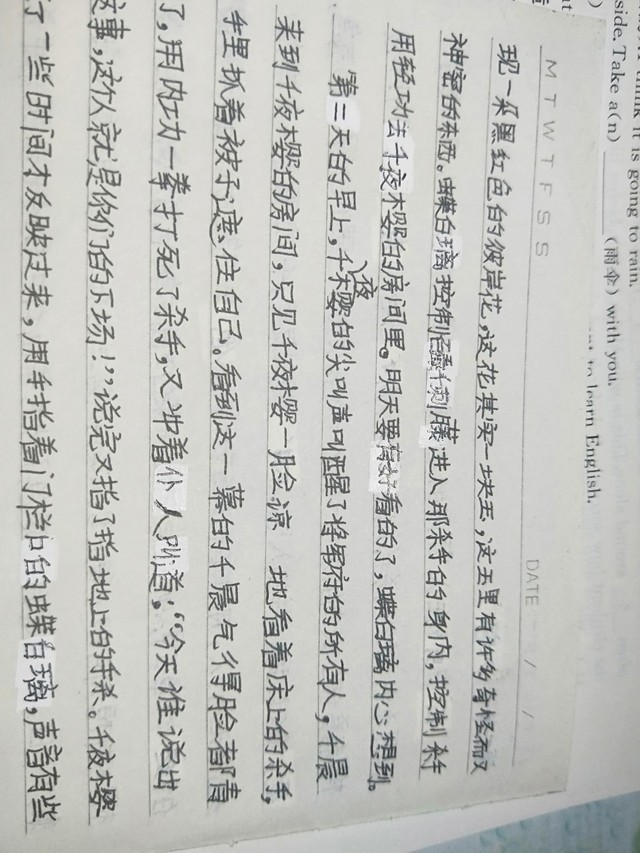 think it is going to rain.
side. Take a(n) ______ (雨伞) with you.
to learn English.
M T W T F S S
DATE / /
现一朵黑红色的彼岸花,这花其实一块玉,这玉里有许多奇怪而又
神密的东西。蝶白璃控制刺藤进入那杀手的身内,控制杀
用轻功去千夜樱的房间里。明天要有好看的了,蝶白璃内心想到。
第二天的早上,千夜樱的尖叫声叫醒了将军府的所有人,千晨
来到千夜樱的房间,只见千夜樱一脸凉 地看着床上的杀手,
手里抓着被子遮住自己。看到这一幕的千晨气得脸都青
了,用内功一拳打死了杀手,又冲着仆人叫道:“今天谁说出
这事,这个人就是你们的下场!”说完又指了指地上的手杀。千夜樱
了一些时间才反映过来,用手指着门栏口的蝶白璃,声音有些